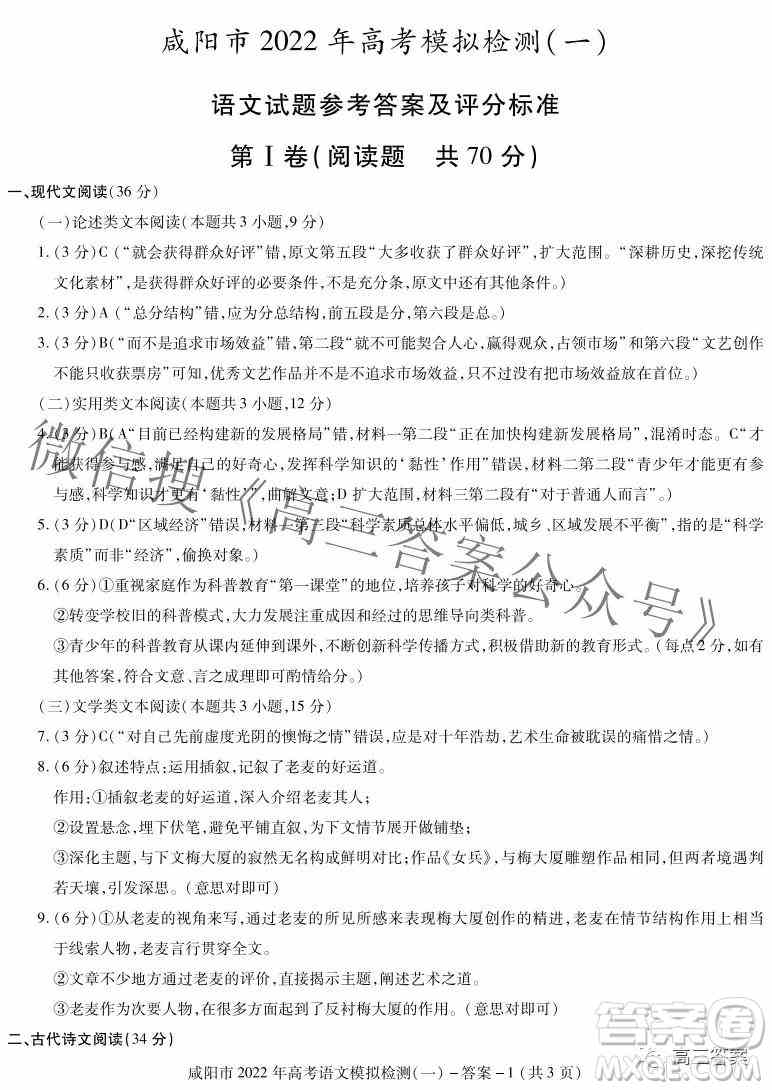 咸阳市 2022 年高考模拟检测(一)
语文试题参考答案及评分标准
第 I 卷(阅读题 共 70 分)
一、现代文阅读(36 分)
(一)论述类文本阅读(本题共 3 小题,9 分)
1.(3 分)C(“就会获得群众好评”错,原文第五段“大多收获了群众好评”,扩大范围。“深耕历史,深挖传统
文化素材”,是获得群众好评的必要条件,不是充分条件,原文中还有其他条件。)
2.(3 分)A(“总分结构”错,应为分总结构,前五段是分总,第六段是总。)
3.(3 分)B(“而不是追求市场效益”错,第二段“就不可能凝聚人心,赢得观众,占领市场”和第四段“文艺创作
不能只收获票房”可知,优秀文艺作品并不是不追求市场效益,而是不能只追求市场效益。)
(二)实用类文本阅读(本题共 3 小题,12 分)
4.(3 分)B(A“目前已经构建新的发展格局”错,材料一第二段“正在加快构建新发展格局”,混淆时态。C“才
能获得参与感,满足自己的好奇心,发挥科学知识的‘黏性’作用”错误,材料二第二段“青少年才能更有参
与感,科学才更有‘黏性’”,曲解文意;D 扩大范围,材料三第一段“对于普通人而言”。)
5.(3 分)D(D“区域经济”错误,材料一第三段“科学素质总体水平偏低,城乡、区域发展不平衡”,是“科学
素质”而非“经济”,偷换对象。)
6.(6 分)①重视家庭作为科普教育“第一课堂”的地位,培养孩子对科学的好奇心。
②转变学校旧的科普模式,大力发展注重因和经过的思维导向类科普。
③青少年的科普教育从课内延伸到课外,不断创新科学传播方式,积极借助新的教育形式。(每点 2 分,如有
其他答案,符合文意、言之成理即可酌情给分。)
(三)文学类文本阅读(本题共 3 小题,15 分)
7.(3 分)C(“对自己先前虚度光阴的懊悔之情”错误,应是对十年浩劫,艺术生命被耽误的痛惜之情。)
8.(6 分)叙述特点:运用插叙,记叙了老麦的好运道。
作用:①插叙老麦的好运道,深入介绍老麦其人;
②设置悬念,埋下伏笔,避免平铺直叙,为下文情节展开做铺垫;
③深化主题,与下文梅大厦的寂然无名构成鲜明对比;作品《女兵》与梅大厦雕塑作品相同,但两者境遇判
若天壤,引发深思。(意思对即可)
9.(6 分)①从老麦的视角来写,通过老麦的所见所感来表现梅大厦创作的精进,老麦在文章结构作用上相当
于线索人物,老麦言行贯穿全文。
②文章不少地方通过老麦的评价,直接揭示主题,阐述艺术之道。
③老麦作为次要人物,大量笔墨写他的言行,有利于反衬梅大厦的形象。(意思对即可)
二、古代诗文阅读(34 分)
咸阳市 2022 年高考语文模拟检测(一)-答案-1(共 3 页)
微信搜《高三答案公众号》
答案圈
高三答案